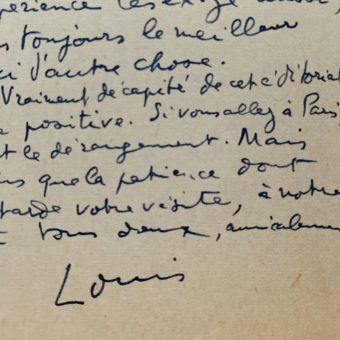 toujours le meilleur
d'autre chose.
Vraiment décapité de cet éditorial
positive. Si vous allez à Paris
le dérangement. Mais
que la patience dont
votre visite, à notre
tous deux, amicalement
Louis